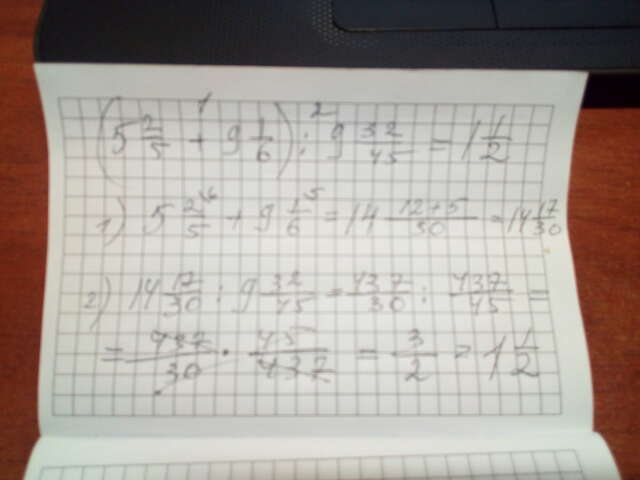 (5 2/5 + 9 1/6) : 9 32/45 = 1 1/2
1) 5 2/5 + 9 1/6 = 14 12+5/30 = 14 17/30
2) 14 17/30 : 9 32/45 = 437/30 : 437/45 =
= 437/30 · 45/437 = 3/2 = 1 1/2